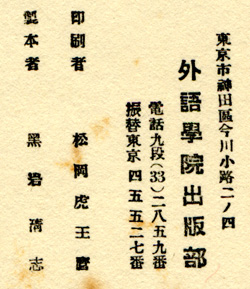 東京市神田區今川小路二ノ四
外語學院出版部
電話九段(33)二八五九番
振替東京四五五二七番
印刷者 松岡虎王麿
製本者 黑岩淸志